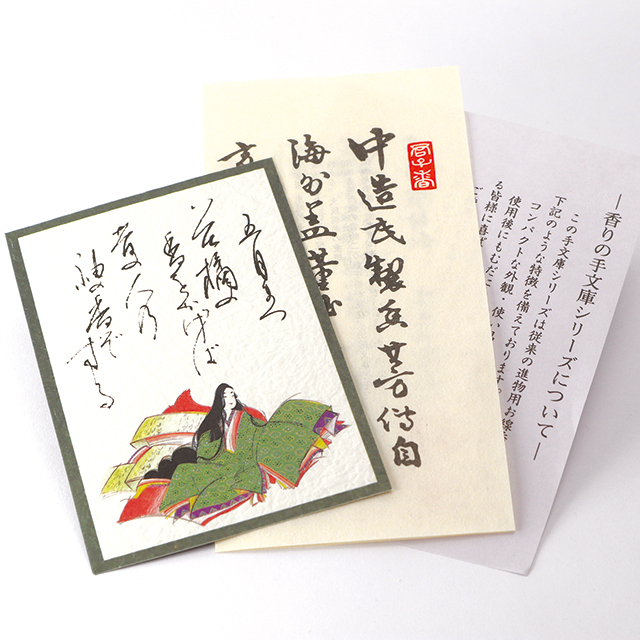 五月まつ
花橘の
香をかげば
昔の人の
袖の香ぞする
君子香
中造氏製
海外盖薫
― 香りの手文庫シリーズについて ―
この手文庫シリーズは従来の進物用お線
下記のような特徴を備えております。
コンパクトな外観、使い
使用後にもむだに
る皆様に喜ば
ご